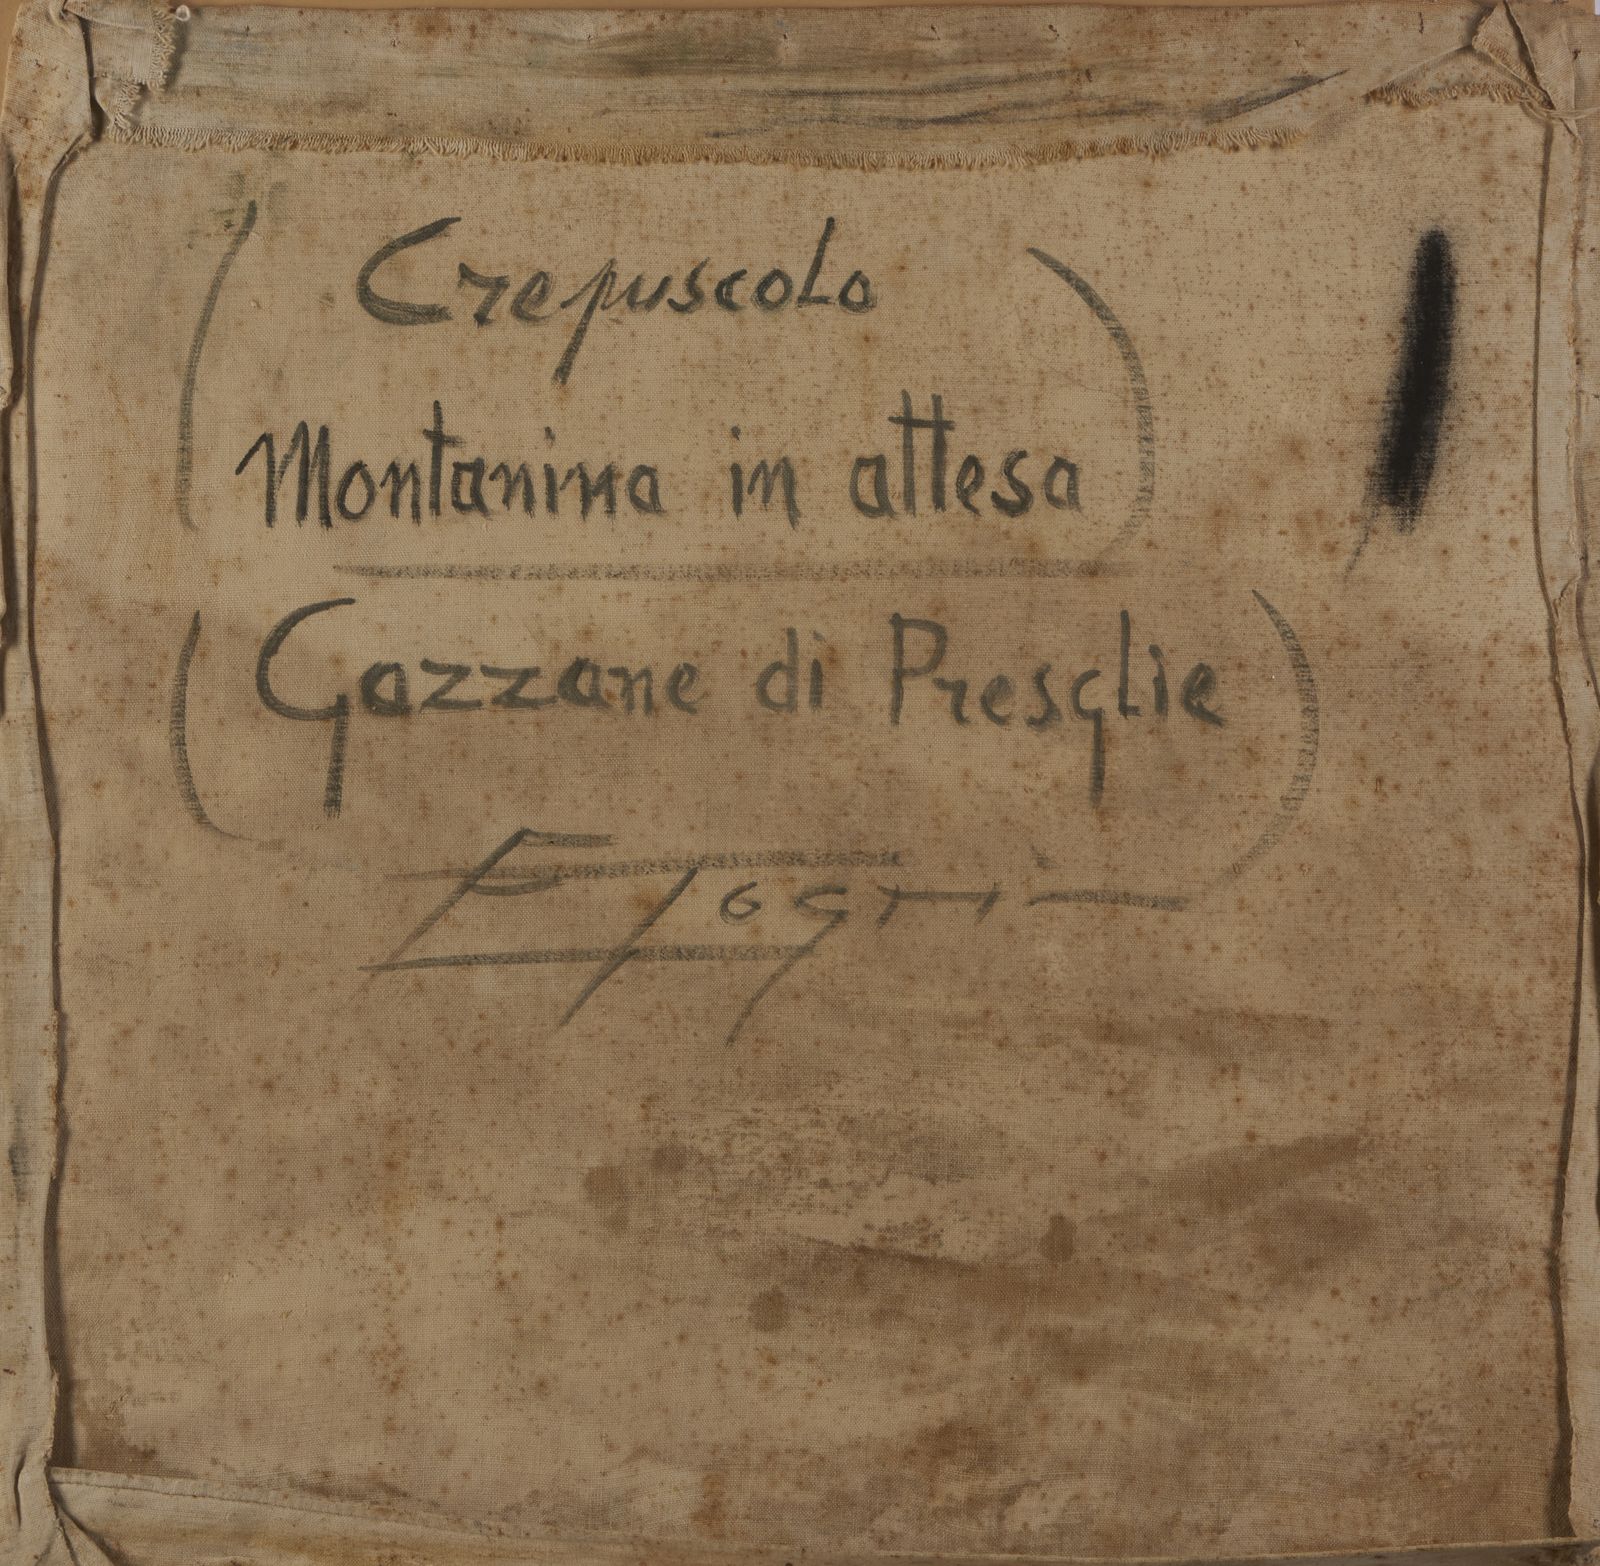 (Crepuscolo
Montanina in attesa)
(Gazzane di Presglie)
E Togni